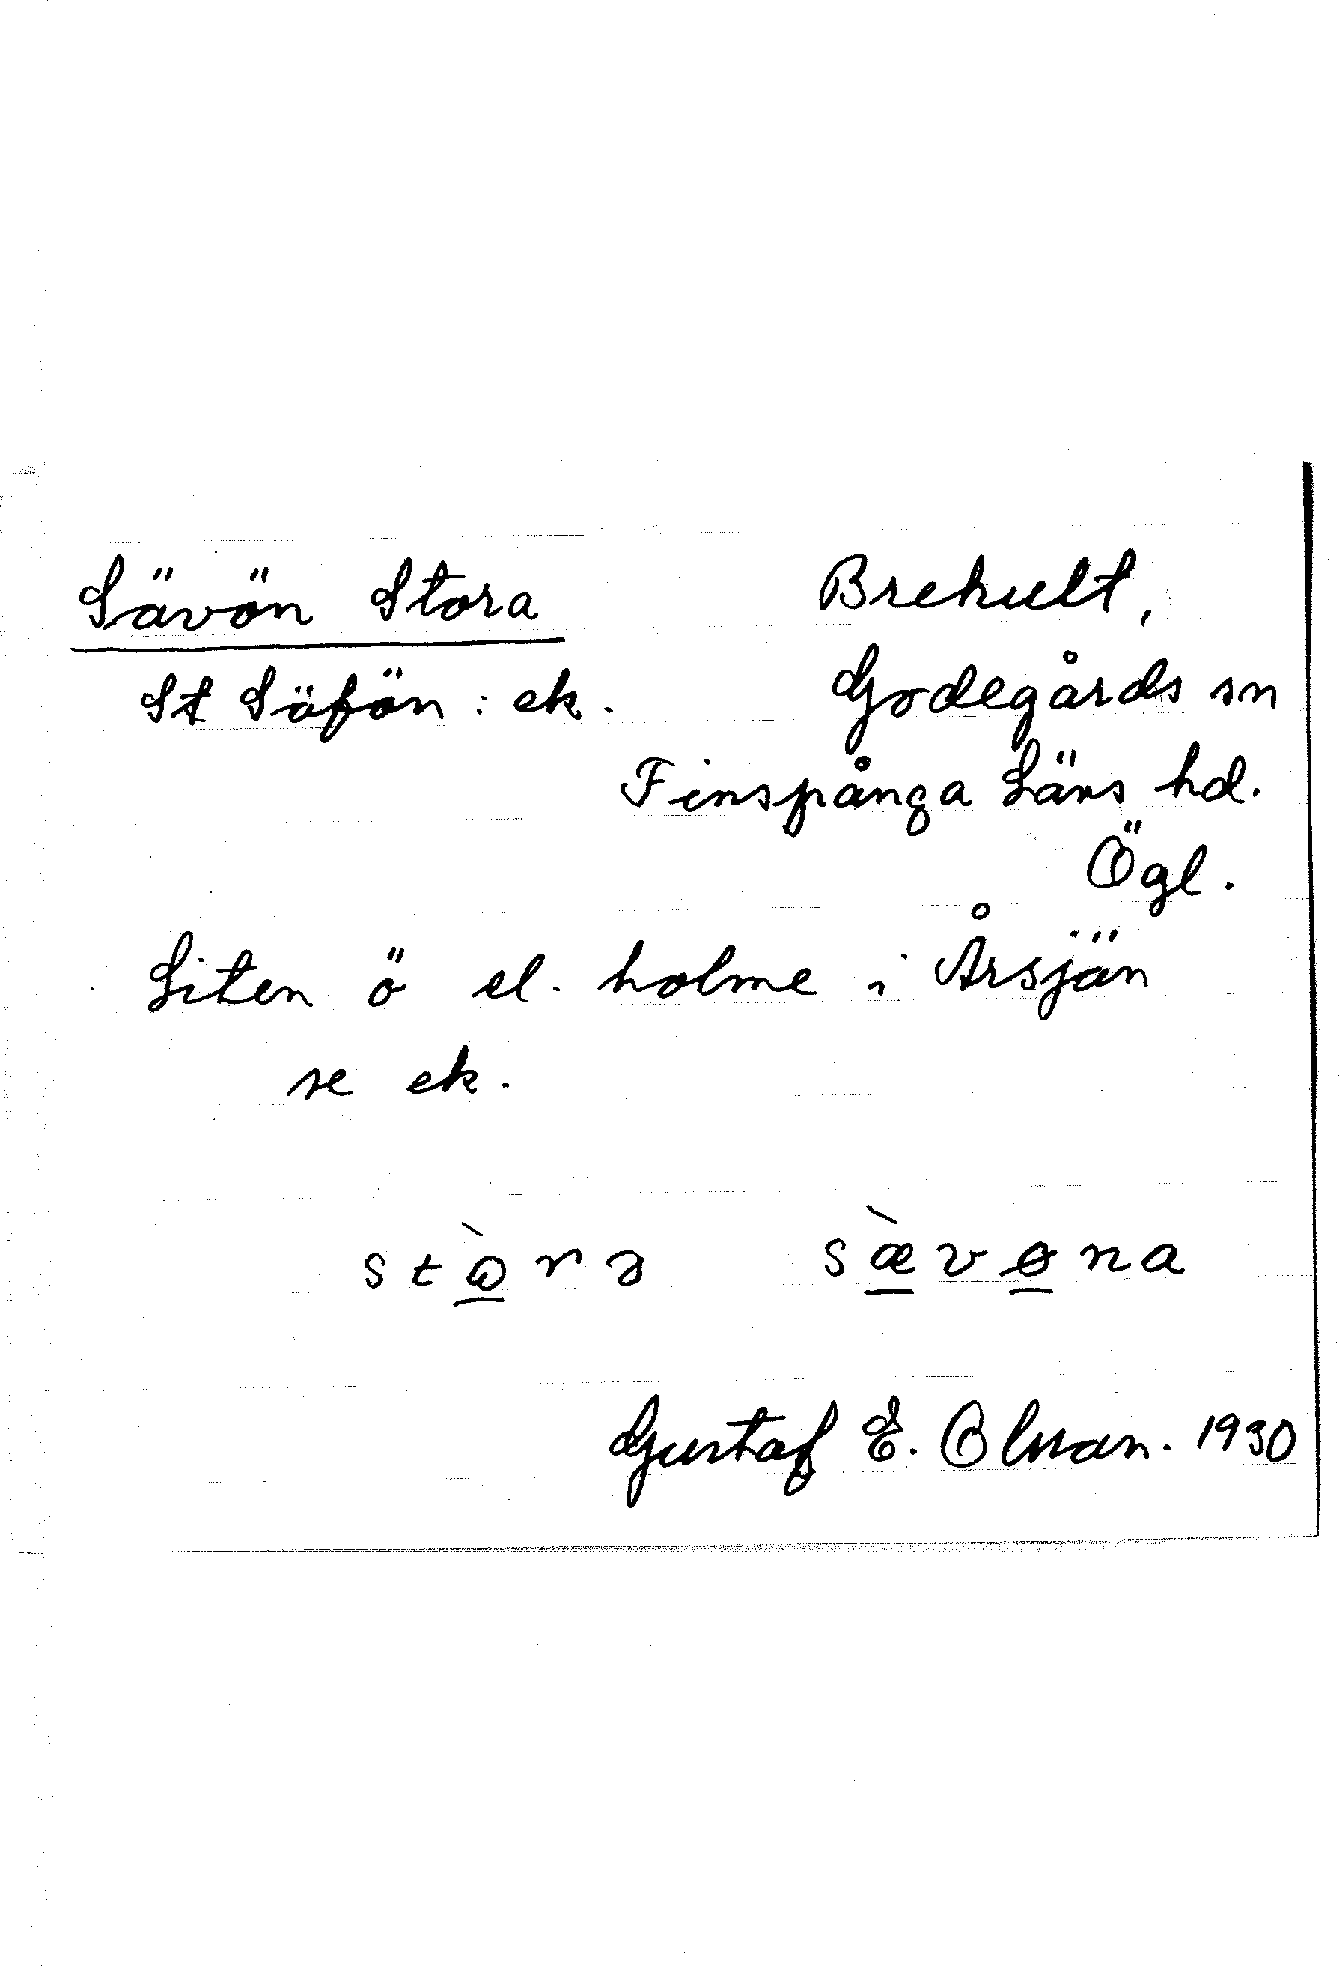 Sävön Stora
St Säfön : ek.
Brehult,
Godegårds sn
Finspånga Läns hd.
Ögl.
Liten ö el. holme i Årsjön
se ek.
stò̠rə sæ̠̀vø̠na
Gustaf E. Olsson. 1930